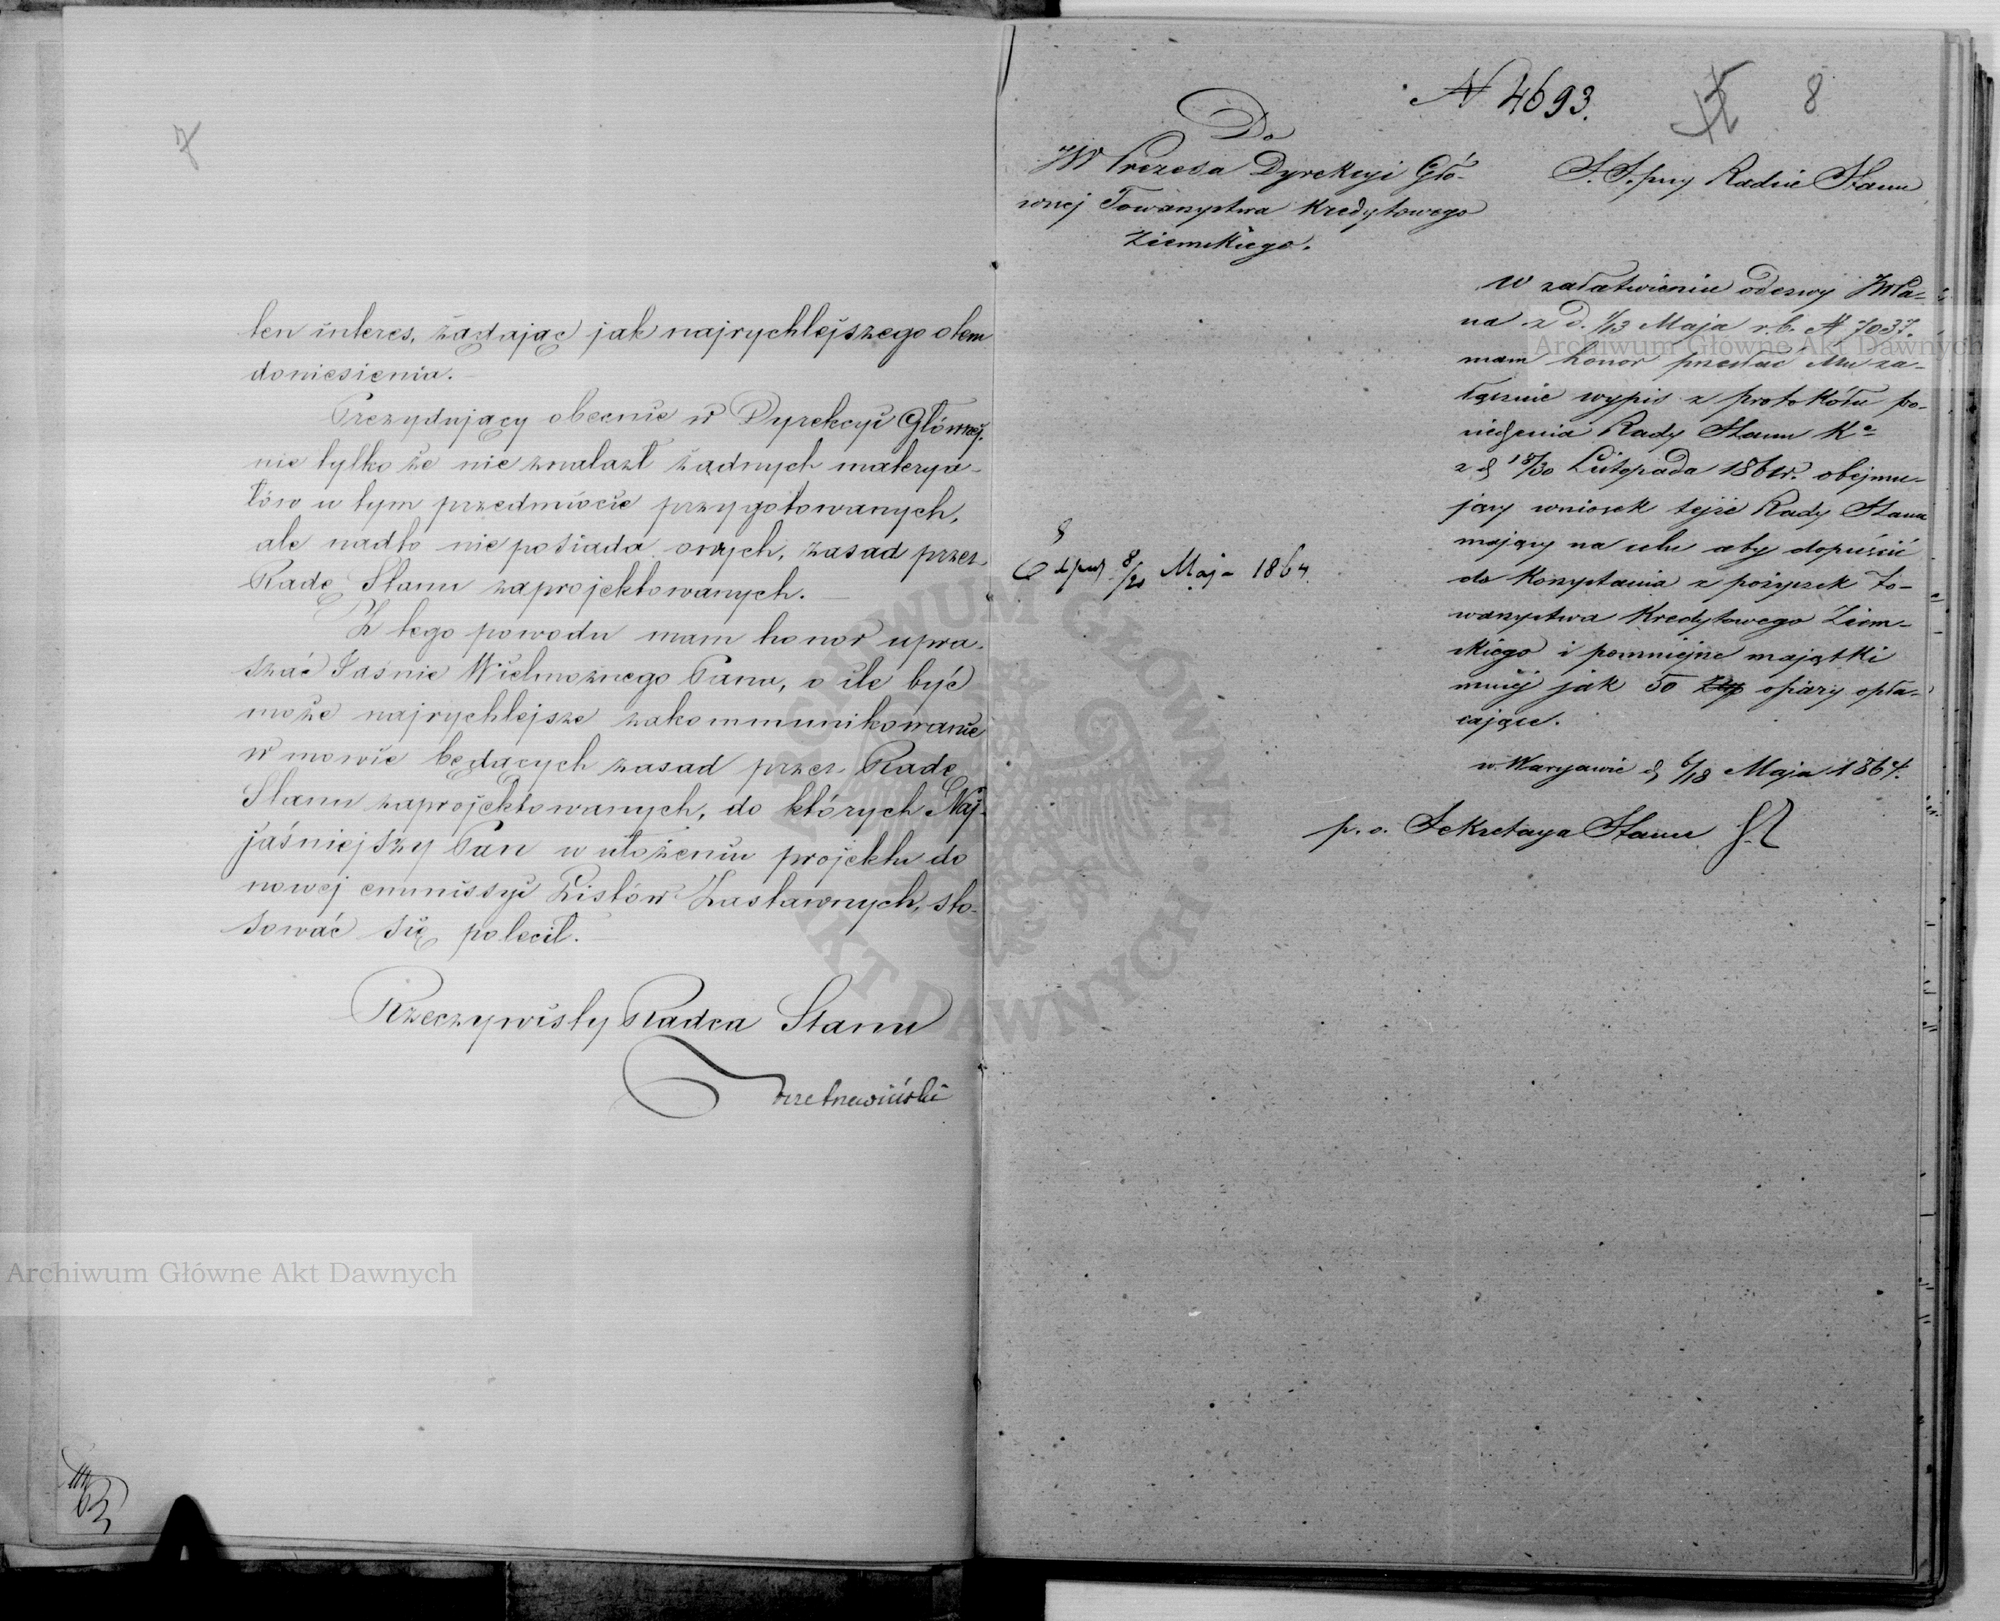 7
ten interes, żądając jak najrychlejszego o tem
doniesienia.
Prezydujący obecnie w Dyrekcyi Głównej,
nie tylko że nie znalazł żadnych materya-
łów w tym przedmiocie przygotowanych,
ale nadto nie posiada owych, zasad przez
Radę Stanu zaprojektowanych.
Z tego powodu mam honor upra-
szać Jaśnie Wielmożnego Pana, o ile być
może najrychlejsze zakommunikowanie
w mowie będących zasad przez Radę
Stanu zaprojektowanych, do których Naj-
jaśniejszy Pan w ułożeniu projektu do
nowej emmissyi Listów Zastawnych, sto-
sować się polecił.
Rzeczywisty Radca Stanu
Archiwum Główne Akt Dawnych
N 4693.
8
Do
JW Prezesa Dyrekcyi Głó-
wnej Towarzystwa Kredytowego
Ziemskiego.
S. S. przy Radzie Stanu
W załatwieniu odezwy JWPa-
na z d. 1/13 Maja r.b. N 7037.
mam honor przesłać Mu za-
łącznie wypis z protokółu po-
siedzenia Rady Stanu
z d 18/30 Listopada 1861r. obejmu-
jący wniosek tejże Rady Stanu
mający na celu aby dopuścić
do korzystania z pożyczek To-
warzystwa Kredytowego Ziem-
skiego i pomniejsze majątki
mniej jak 50 ofiary opła-
cające.
w Warszawie d 6/18 Maja 1864.
p. o. Sekretarza Stanu
8/20 Maja 1864.
Archiwum Główne Akt Dawnych
ARCHIWUM GŁÓWNE AKT DAWNYCH